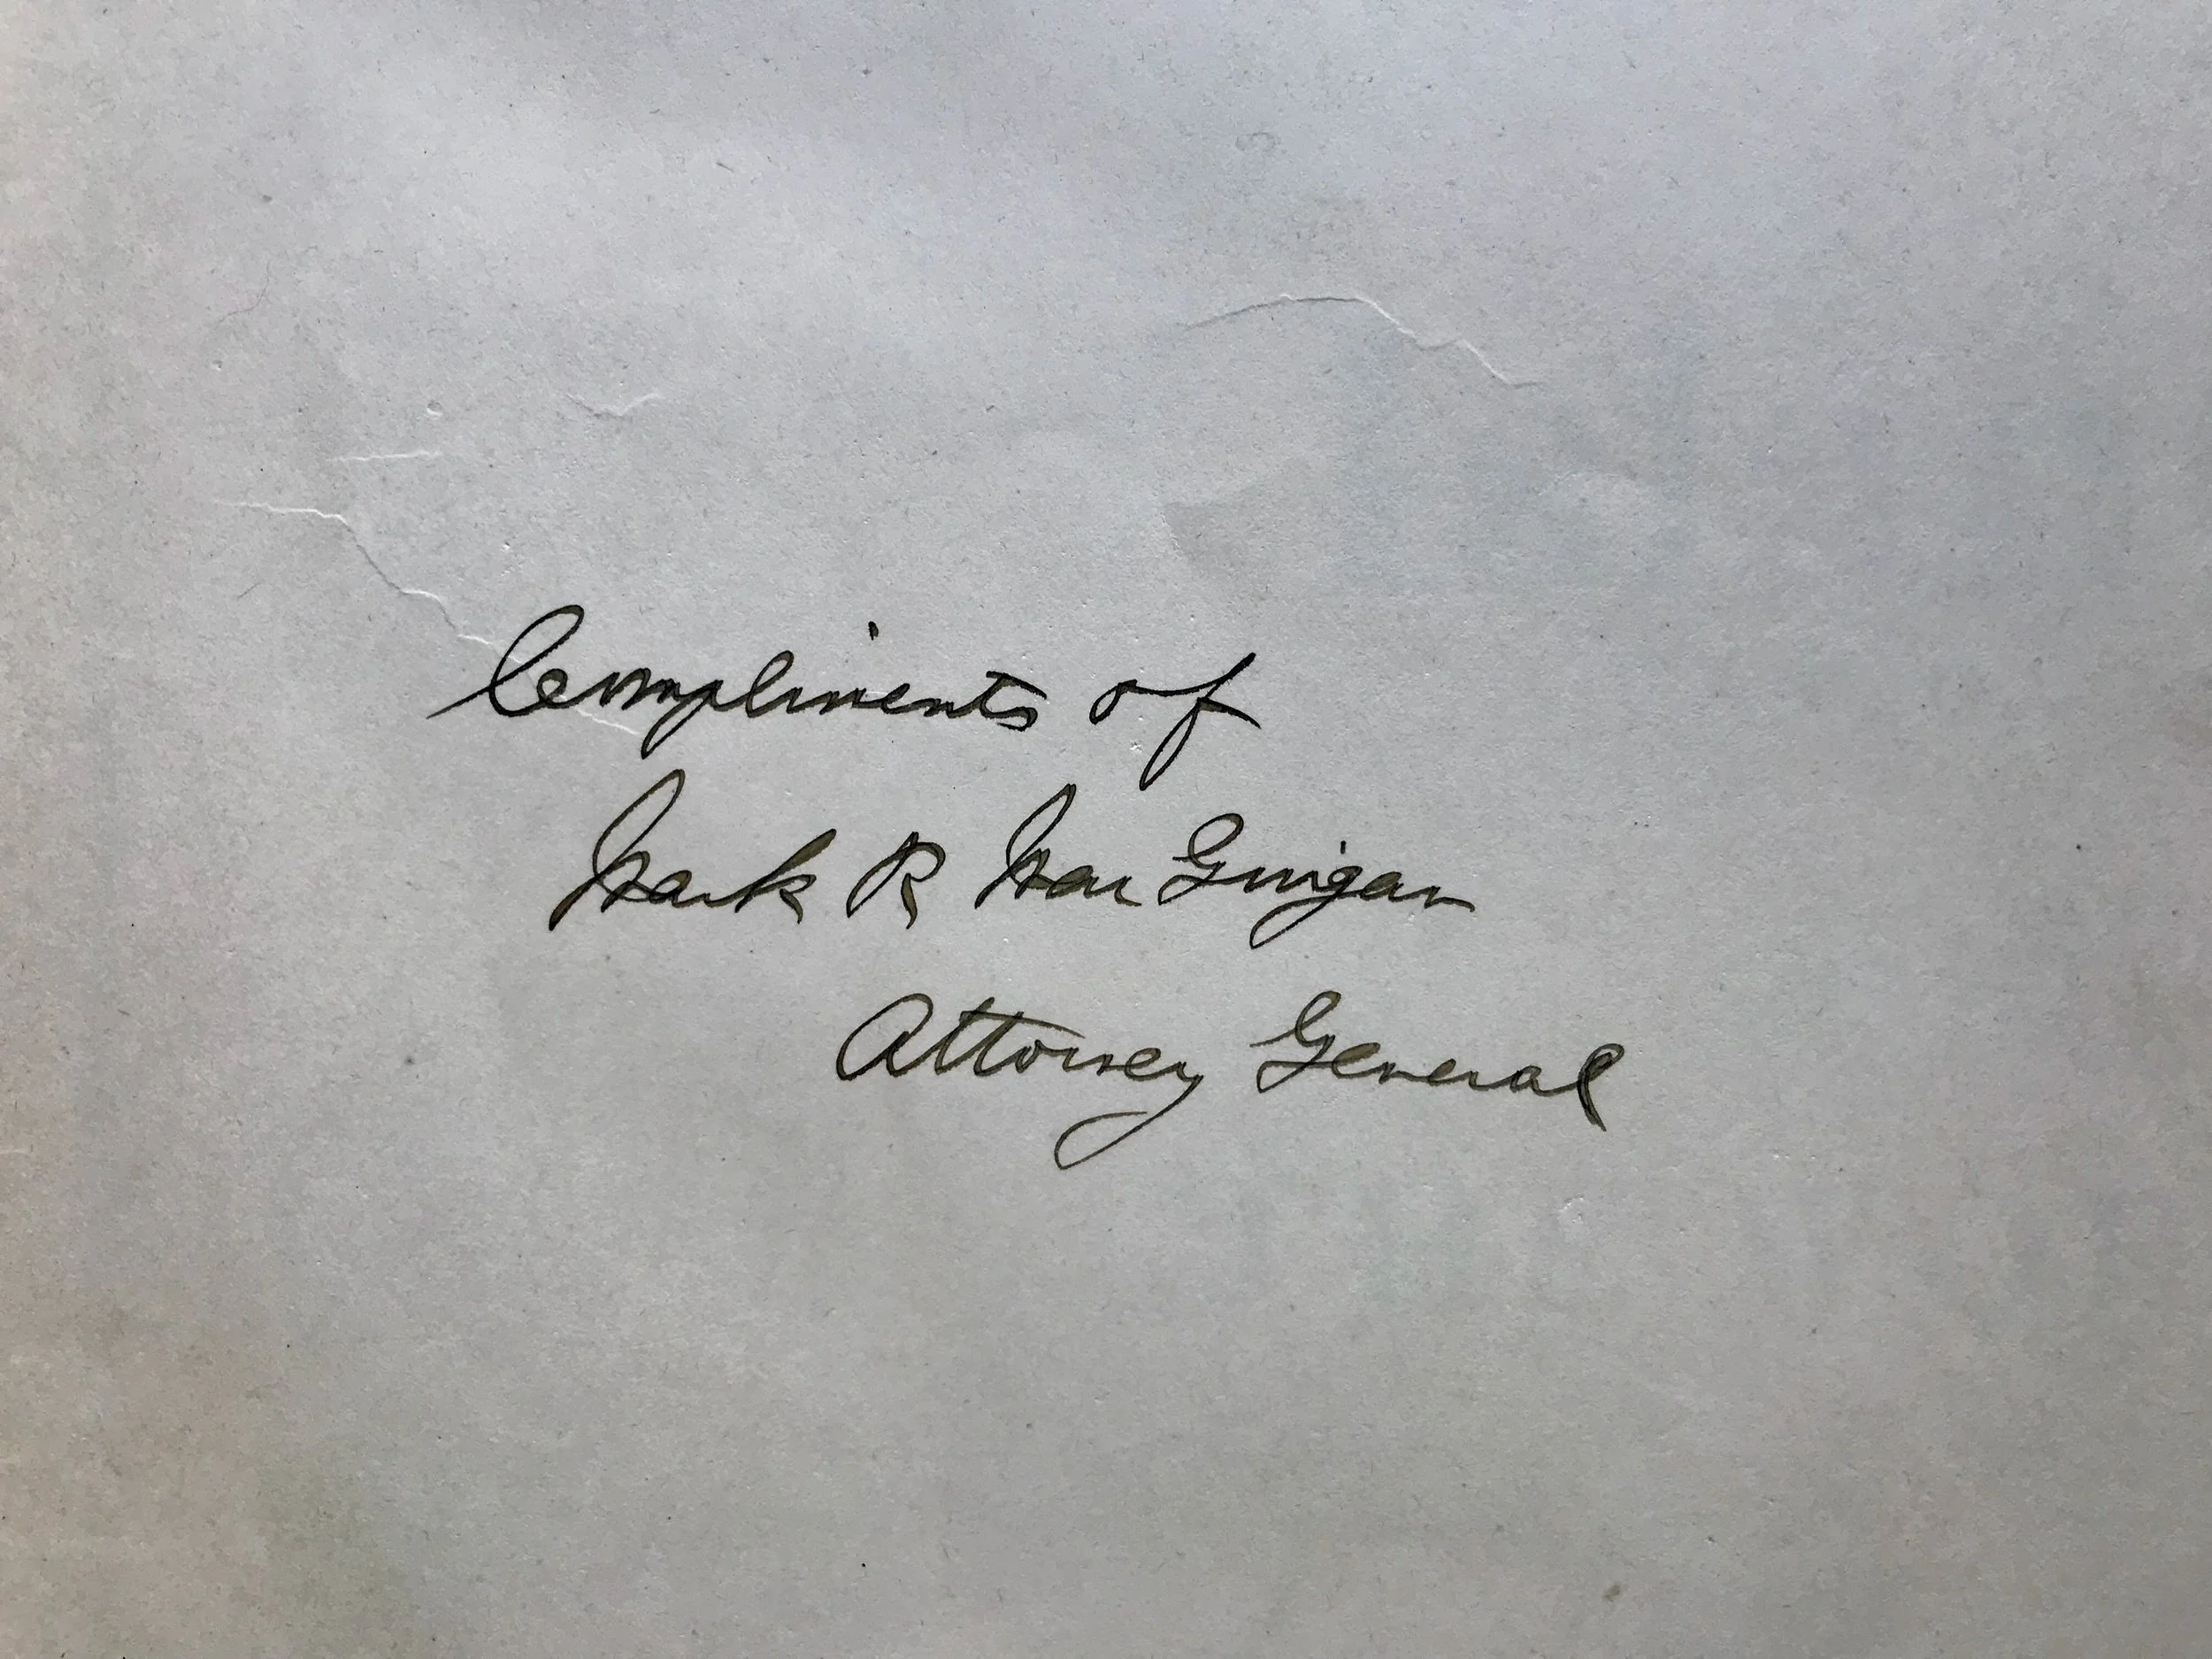 Compliments of
Mark R MacGuigan
Attorney General